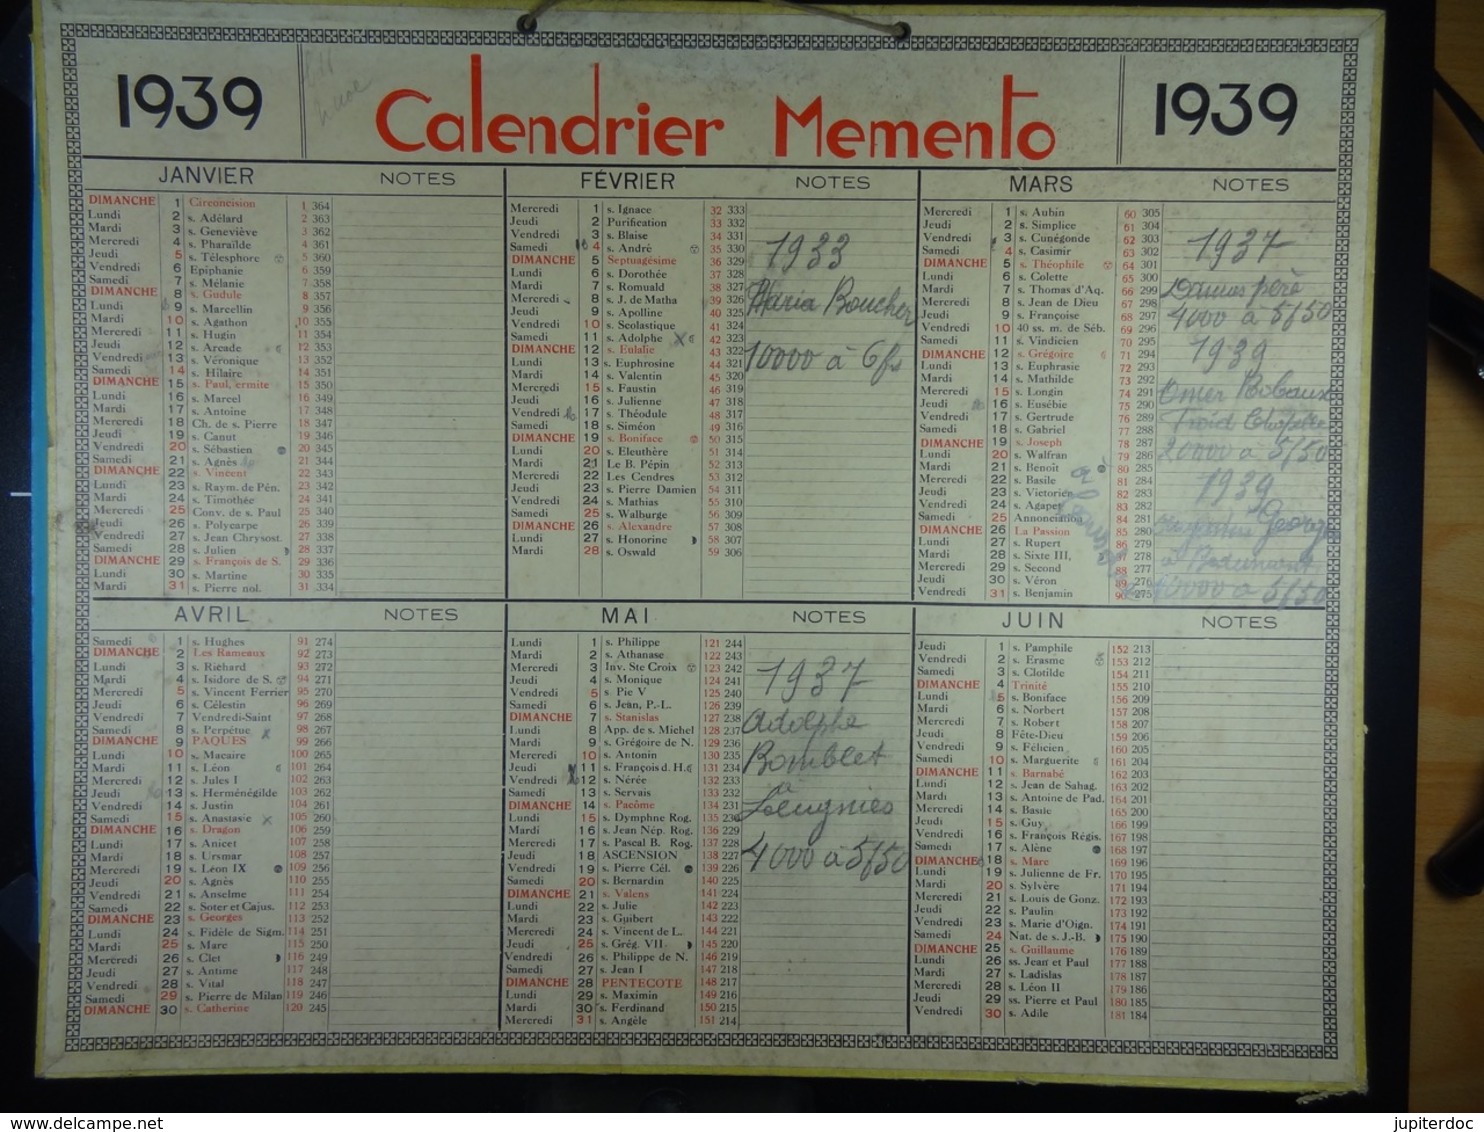 1939
Calendrier Memento
1939
JANVIER NOTES
DIMANCHE 1 Circoncision 1 364
Lundi 2 s. Adélard 2 363
Mardi 3 s. Geneviève 3 362
Mercredi 4 s. Pharaïlde 4 361
Jeudi 5 s. Télesphore 5 360
Vendredi 6 Epiphanie 6 359
Samedi 7 s. Mélanie 7 358
DIMANCHE 8 s. Gudule 8 357
Lundi 9 s. Marcellin 9 356
Mardi 10 s. Agathon 10 355
Mercredi 11 s. Hugin 11 354
Jeudi 12 s. Arcade 12 353
Vendredi 13 s. Véronique 13 352
Samedi 14 s. Hilaire 14 351
DIMANCHE 15 s. Paul, ermite 15 350
Lundi 16 s. Marcel 16 349
Mardi 17 s. Antoine 17 348
Mercredi 18 Ch. de s. Pierre 18 347
Jeudi 19 s. Canut 19 346
Vendredi 20 s. Sébastien 20 345
Samedi 21 s. Agnès 21 344
DIMANCHE 22 s. Vincent 22 343
Lundi 23 s. Raym. de Pén. 23 342
Mardi 24 s. Timothée 24 341
Mercredi 25 Conv. de s. Paul 25 340
Jeudi 26 s. Polycarpe 26 339
Vendredi 27 s. Jean Chrysost. 27 338
Samedi 28 s. Julien 28 337
DIMANCHE 29 s. François de S. 29 336
Lundi 30 s. Martine 30 335
Mardi 31 s. Pierre nol. 31 334
FÉVRIER NOTES
Mercredi 1 s. Ignace 32 333
Jeudi 2 Purification 33 332
Vendredi 3 s. Blaise 34 331
Samedi 4 s. André 35 330
DIMANCHE 5 Septuagésime 36 329
Lundi 6 s. Dorothée 37 328
Mardi 7 s. Romuald 38 327
Mercredi 8 s. J. de Matha 39 326
Jeudi 9 s. Apolline 40 325
Vendredi 10 s. Scolastique 41 324
Samedi 11 s. Adolphe 42 323
DIMANCHE 12 s. Eulalie 43 322
Lundi 13 s. Euphrosine 44 321
Mardi 14 s. Valentin 45 320
Mercredi 15 s. Faustin 46 319
Jeudi 16 s. Julienne 47 318
Vendredi 17 s. Théodule 48 317
Samedi 18 s. Siméon 49 316
DIMANCHE 19 s. Boniface 50 315
Lundi 20 s. Eleuthère 51 314
Mardi 21 Le B. Pépin 52 313
Mercredi 22 Les Cendres 53 312
Jeudi 23 s. Pierre Damien 54 311
Vendredi 24 s. Mathias 55 310
Samedi 25 s. Walburge 56 309
DIMANCHE 26 s. Alexandre 57 308
Lundi 27 s. Honorine 58 307
Mardi 28 s. Oswald 59 306
1933
Maria Boucher
10000 à 6 fs
MARS NOTES
Mercredi 1 s. Aubin 60 305
Jeudi 2 s. Simplice 61 304
Vendredi 3 s. Cunégonde 62 303
Samedi 4 s. Casimir 63 302
DIMANCHE 5 s. Théophile 64 301
Lundi 6 s. Colette 65 300
Mardi 7 s. Thomas d'Aq. 66 299
Mercredi 8 s. Jean de Dieu 67 298
Jeudi 9 s. Françoise 68 297
Vendredi 10 40 ss. m. de Séb. 69 296
Samedi 11 s. Vindicien 70 295
DIMANCHE 12 s. Grégoire 71 294
Lundi 13 s. Euphrasie 72 293
Mardi 14 s. Mathilde 73 292
Mercredi 15 s. Longin 74 291
Jeudi 16 s. Eusébie 75 290
Vendredi 17 s. Gertrude 76 289
Samedi 18 s. Gabriel 77 288
DIMANCHE 19 s. Joseph 78 287
Lundi 20 s. Walfran 79 286
Mardi 21 s. Benoît 80 285
Mercredi 22 s. Basile 81 284
Jeudi 23 s. Victorien 82 283
Vendredi 24 s. Agapet 83 282
Samedi 25 Annonciation 84 281
DIMANCHE 26 La Passion 85 280
Lundi 27 s. Rupert 86 279
Mardi 28 s. Sixte III, 87 278
Mercredi 29 s. Second 88 277
Jeudi 30 s. Véron 89 276
Vendredi 31 s. Benjamin 90 275
1937
père
4000 à 5/50
1939
Omer
20000 à 5/50
1939
George
à Beaumont
10000 à 5/50
AVRIL NOTES
Samedi 1 s. Hughes 91 274
DIMANCHE 2 Les Rameaux 92 273
Lundi 3 s. Richard 93 272
Mardi 4 s. Isidore de S. 94 271
Mercredi 5 s. Vincent Ferrier 95 270
Jeudi 6 s. Célestin 96 269
Vendredi 7 Vendredi-Saint 97 268
Samedi 8 s. Perpétue 98 267
DIMANCHE 9 PAQUES 99 266
Lundi 10 s. Macaire 100 265
Mardi 11 s. Léon 101 264
Mercredi 12 s. Jules I 102 263
Jeudi 13 s. Herménégilde 103 262
Vendredi 14 s. Justin 104 261
Samedi 15 s. Anastasie 105 260
DIMANCHE 16 s. Dragon 106 259
Lundi 17 s. Anicet 107 258
Mardi 18 s. Ursmar 108 257
Mercredi 19 s. Léon IX 109 256
Jeudi 20 s. Agnès 110 255
Vendredi 21 s. Anselme 111 254
Samedi 22 s. Soter et Cajus. 112 253
DIMANCHE 23 s. Georges 113 252
Lundi 24 s. Fidèle de Sigm. 114 251
Mardi 25 s. Marc 115 250
Mercredi 26 s. Clet 116 249
Jeudi 27 s. Antime 117 248
Vendredi 28 s. Vital 118 247
Samedi 29 s. Pierre de Milan 119 246
DIMANCHE 30 s. Catherine 120 245
MAI NOTES
Lundi 1 s. Philippe 121 244
Mardi 2 s. Athanase 122 243
Mercredi 3 Inv. Ste Croix 123 242
Jeudi 4 s. Monique 124 241
Vendredi 5 s. Pie V 125 240
Samedi 6 s. Jean, P.-L. 126 239
DIMANCHE 7 s. Stanislas 127 238
Lundi 8 App. de s. Michel 128 237
Mardi 9 s. Grégoire de N. 129 236
Mercredi 10 s. Antonin 130 235
Jeudi 11 s. François d. H. 131 234
Vendredi 12 s. Nérée 132 233
Samedi 13 s. Servais 133 232
DIMANCHE 14 s. Pacôme 134 231
Lundi 15 s. Dymphne Rog. 135 230
Mardi 16 s. Jean Nép. Rog. 136 229
Mercredi 17 s. Pascal B. Rog. 137 228
Jeudi 18 ASCENSION 138 227
Vendredi 19 s. Pierre Cél. 139 226
Samedi 20 s. Bernardin 140 225
DIMANCHE 21 s. Valens 141 224
Lundi 22 s. Julie 142 223
Mardi 23 s. Guibert 143 222
Mercredi 24 s. Vincent de L. 144 221
Jeudi 25 s. Grég. VII 145 220
Vendredi 26 s. Philippe de N. 146 219
Samedi 27 s. Jean I 147 218
DIMANCHE 28 PENTECOTE 148 217
Lundi 29 s. Maximin 149 216
Mardi 30 s. Ferdinand 150 215
Mercredi 31 s. Angèle 151 214
1937
Adolphe
Bomblet
à
Leugnies
4000 à 5/50
JUIN NOTES
Jeudi 1 s. Pamphile 152 213
Vendredi 2 s. Erasme 153 212
Samedi 3 s. Clotilde 154 211
DIMANCHE 4 Trinité 155 210
Lundi 5 s. Boniface 156 209
Mardi 6 s. Norbert 157 208
Mercredi 7 s. Robert 158 207
Jeudi 8 Fête-Dieu 159 206
Vendredi 9 s. Félicien 160 205
Samedi 10 s. Marguerite 161 204
DIMANCHE 11 s. Barnabé 162 203
Lundi 12 s. Jean de Sahag. 163 202
Mardi 13 s. Antoine de Pad. 164 201
Mercredi 14 s. Basile 165 200
Jeudi 15 s. Guy 166 199
Vendredi 16 s. François Régis. 167 198
Samedi 17 s. Alène 168 197
DIMANCHE 18 s. Marc 169 196
Lundi 19 s. Julienne de Fr. 170 195
Mardi 20 s. Sylvère 171 194
Mercredi 21 s. Louis de Gonz. 172 193
Jeudi 22 s. Paulin 173 192
Vendredi 23 s. Marie d'Oign. 174 191
Samedi 24 Nat. de s. J.-B. 175 190
DIMANCHE 25 s. Guillaume 176 189
Lundi 26 ss. Jean et Paul 177 188
Mardi 27 s. Ladislas 178 187
Mercredi 28 s. Léon II 179 186
Jeudi 29 ss. Pierre et Paul 180 185
Vendredi 30 s. Adile 181 184
www.delcampe.net
jupiterdoc